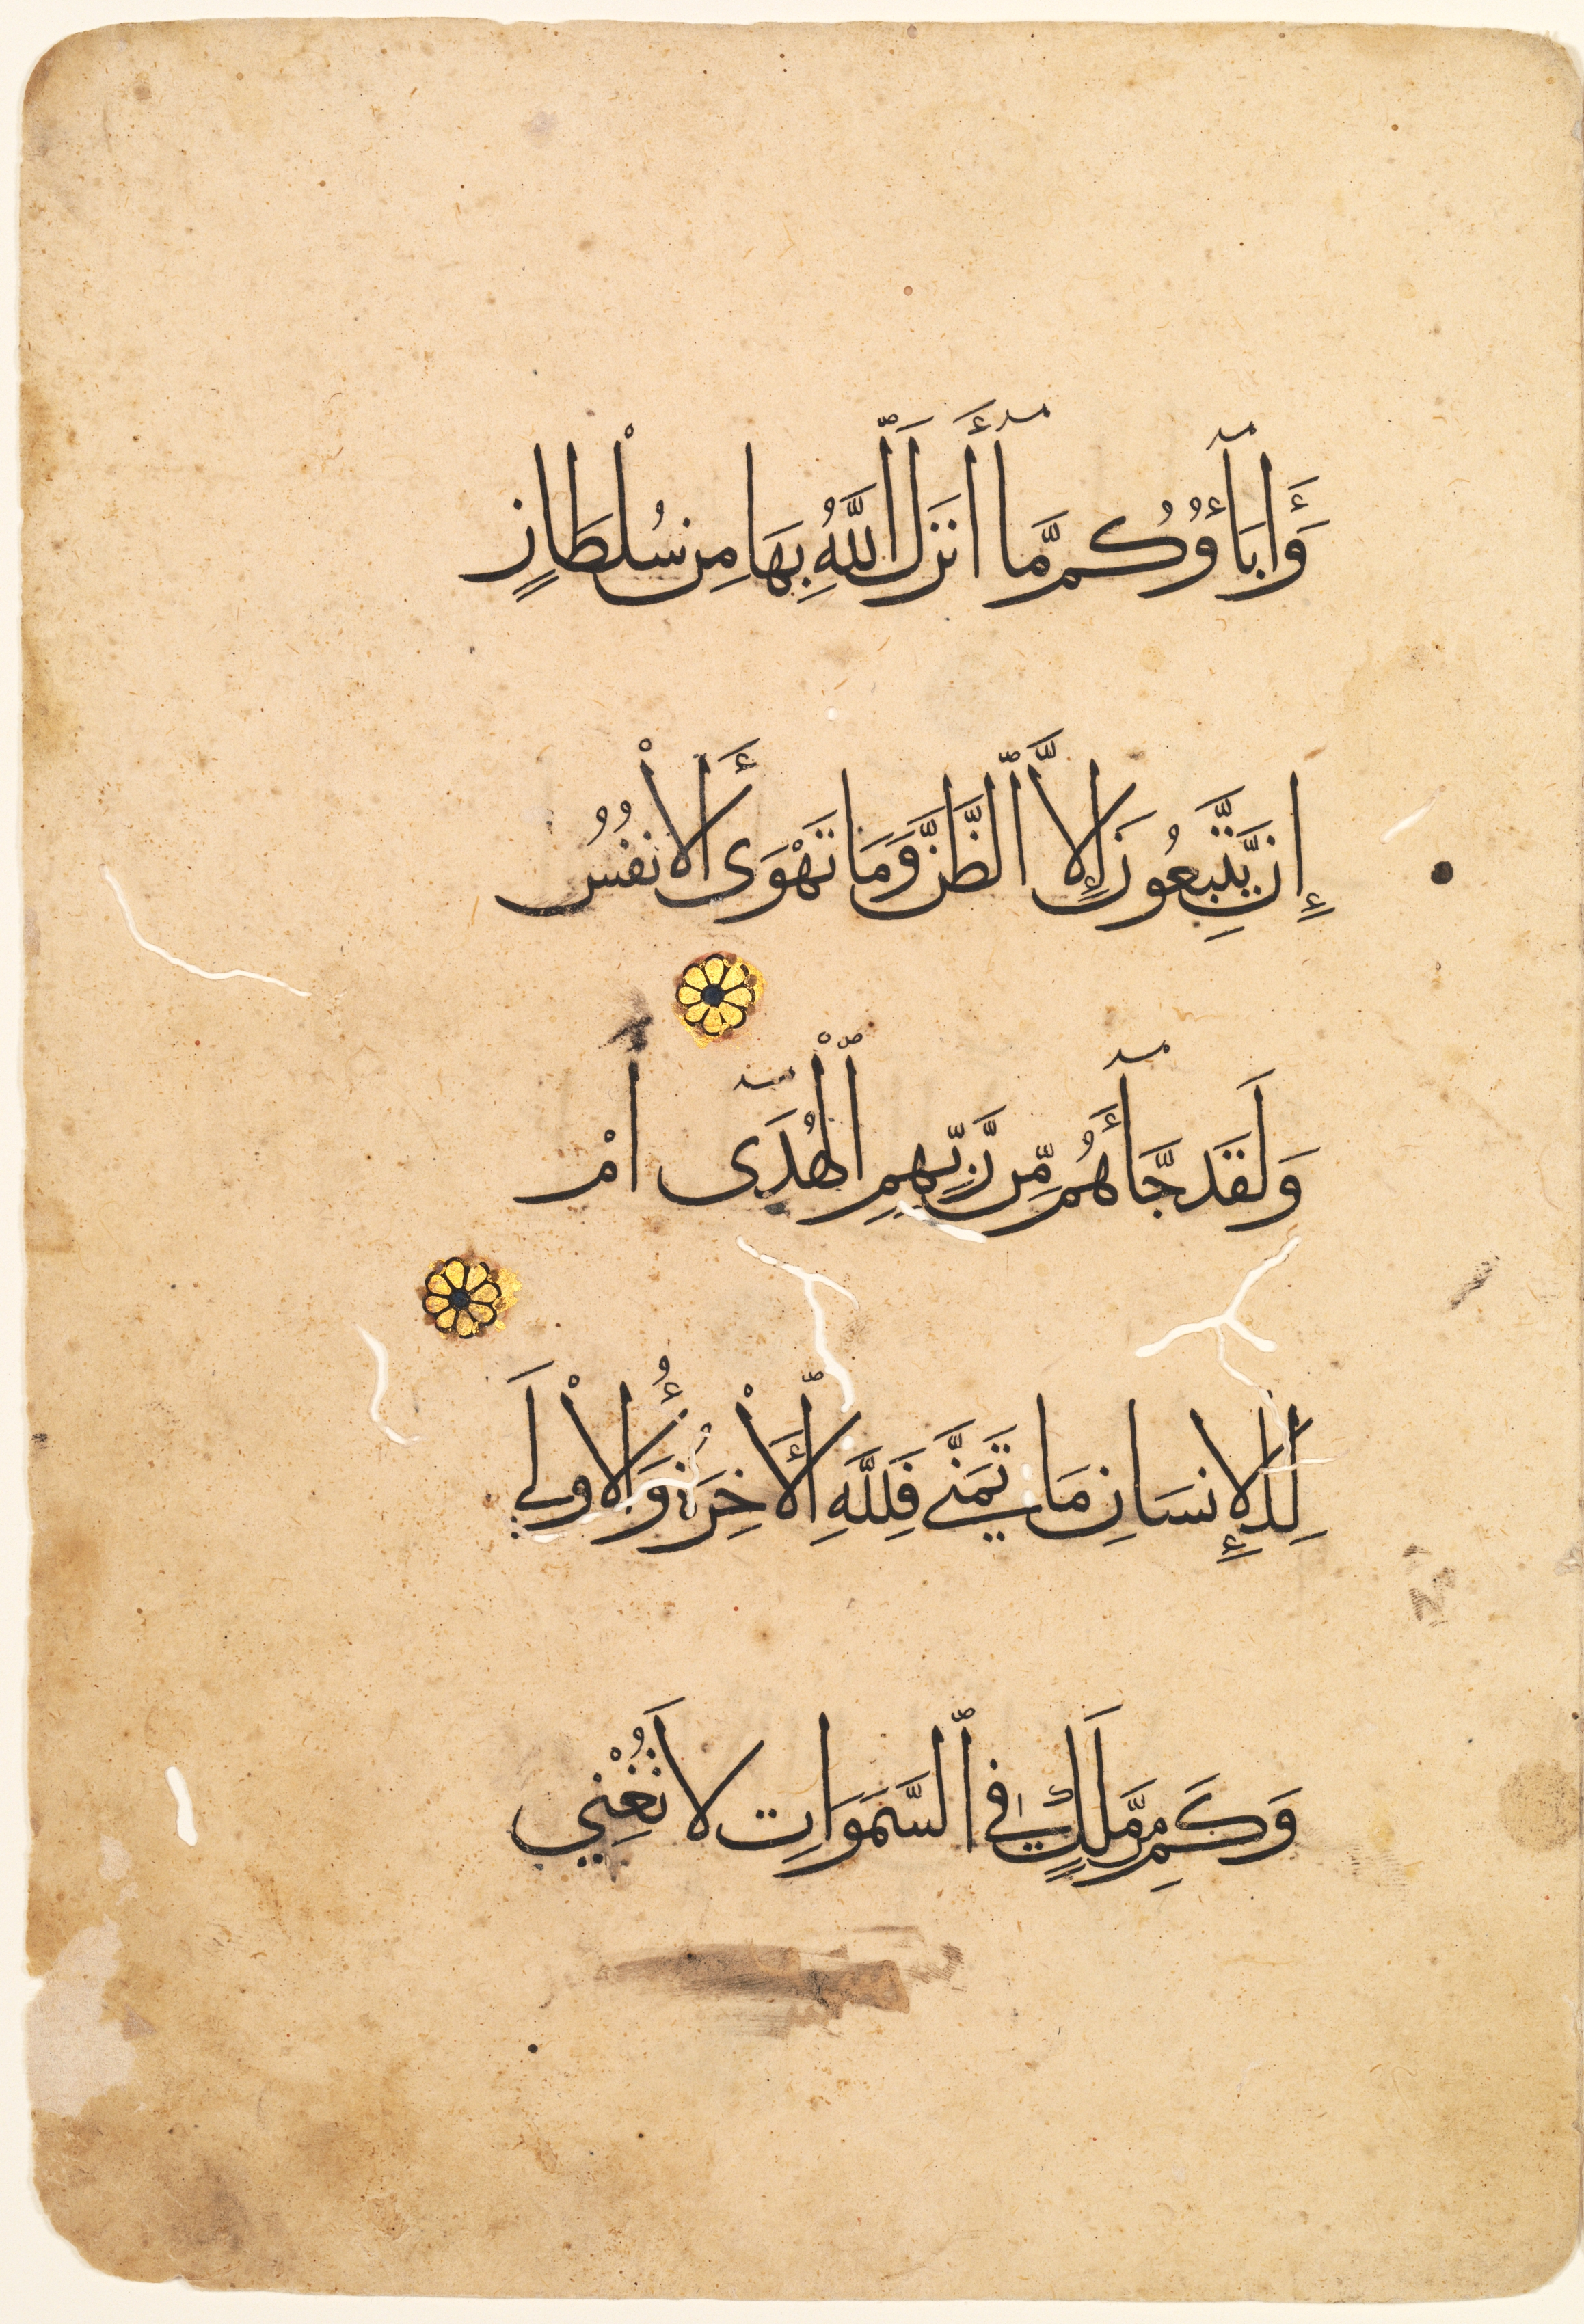 وَءَابَآؤُكُم مَّآ أَنزَلَ ٱللَّهُ بِهَا مِن سُلْطَانٍ
إِن يَتَّبِعُونَ إِلَّا ٱلظَّنَّ وَمَا تَهْوَى ٱلْأَنفُسُ
وَلَقَد جَّآءَهُم مِّن رَّبِّهِمِ ٱلْهُدَىٓ أَمْ
لِلْإِنسَانِ مَا تَمَنَّى فَلِلَّهِ ٱلْأَخِرَةُ وَالْأُولَى
وَكَم مِّن مَّلَكٍ فِي ٱلسَّمَوَاتِ لَا تُغْنِي